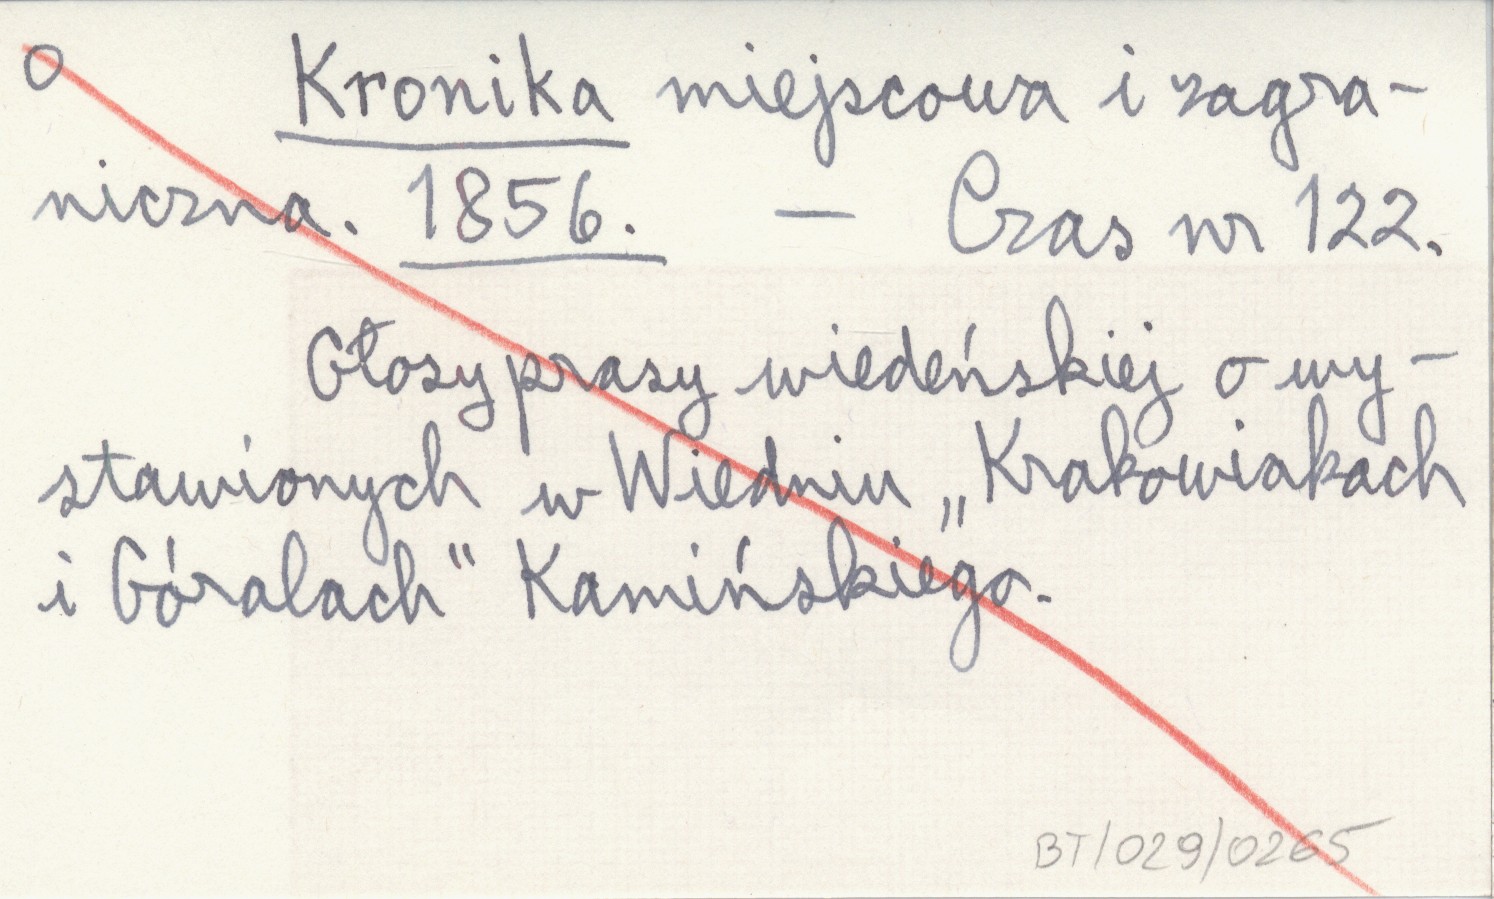 O Kronika miejscowa i zagra-
niczna. 1856. — Czas nr 122.
Głosy prasy wiedeńskiej o wy-
stawionych w Wiedniu „Krakowiakach
i Góralach" Kamińskiego.
BT/029/0265